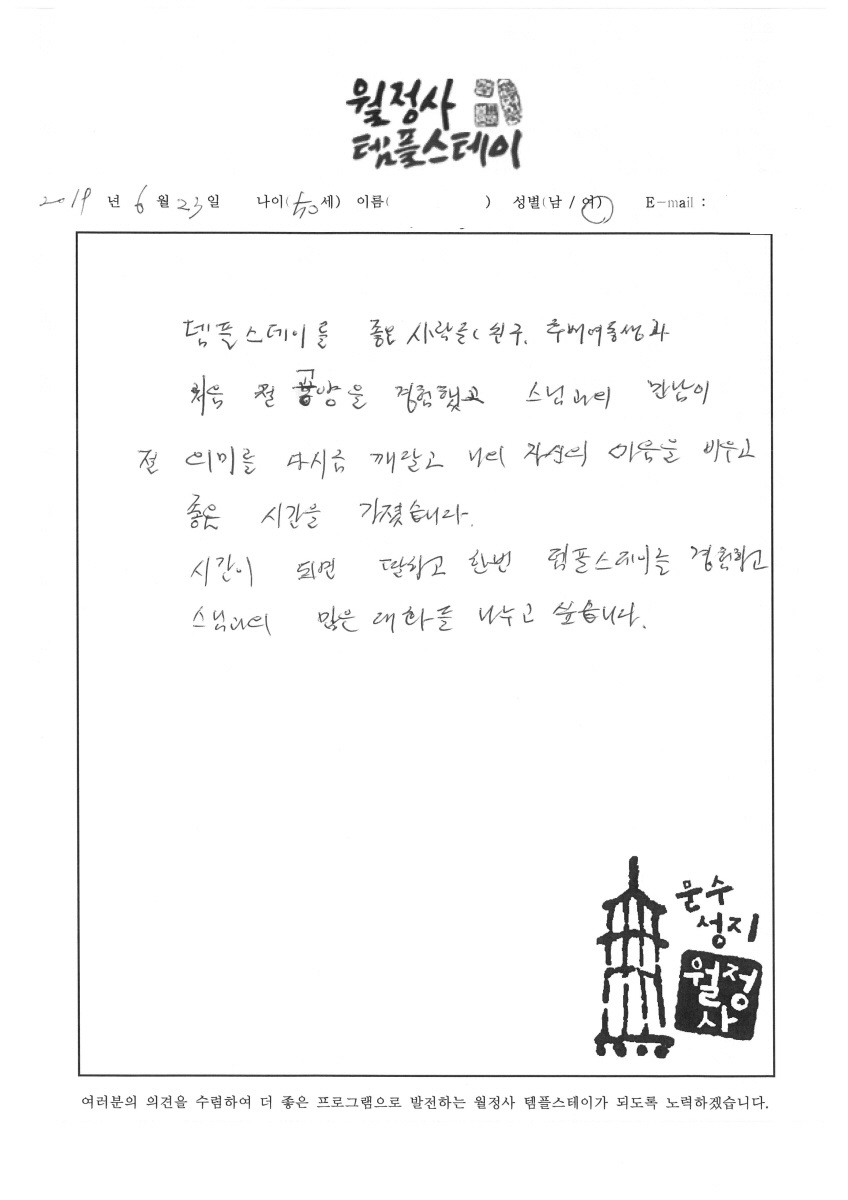 월정사
템플스테이
2019 년 6 월 23 일 나이( 50 세) 이름( ) 성별(남 / 여) E-mail :
템플스테이를 좋은 사람들(친구, 주변여동생과
처음 절 공양을 경험했고 스님과의 만남이
절 의미를 다시금 깨달고 나의 자신의 마음을 비우고
좋은 시간을 가졌습니다.
시간이 되면 또 한번 템플스테이를 경험하고
스님과의 많은 대화를 나누고 싶습니다.
문수
성지
월정
사
여러분의 의견을 수렴하여 더 좋은 프로그램으로 발전하는 월정사 템플스테이가 되도록 노력하겠습니다.